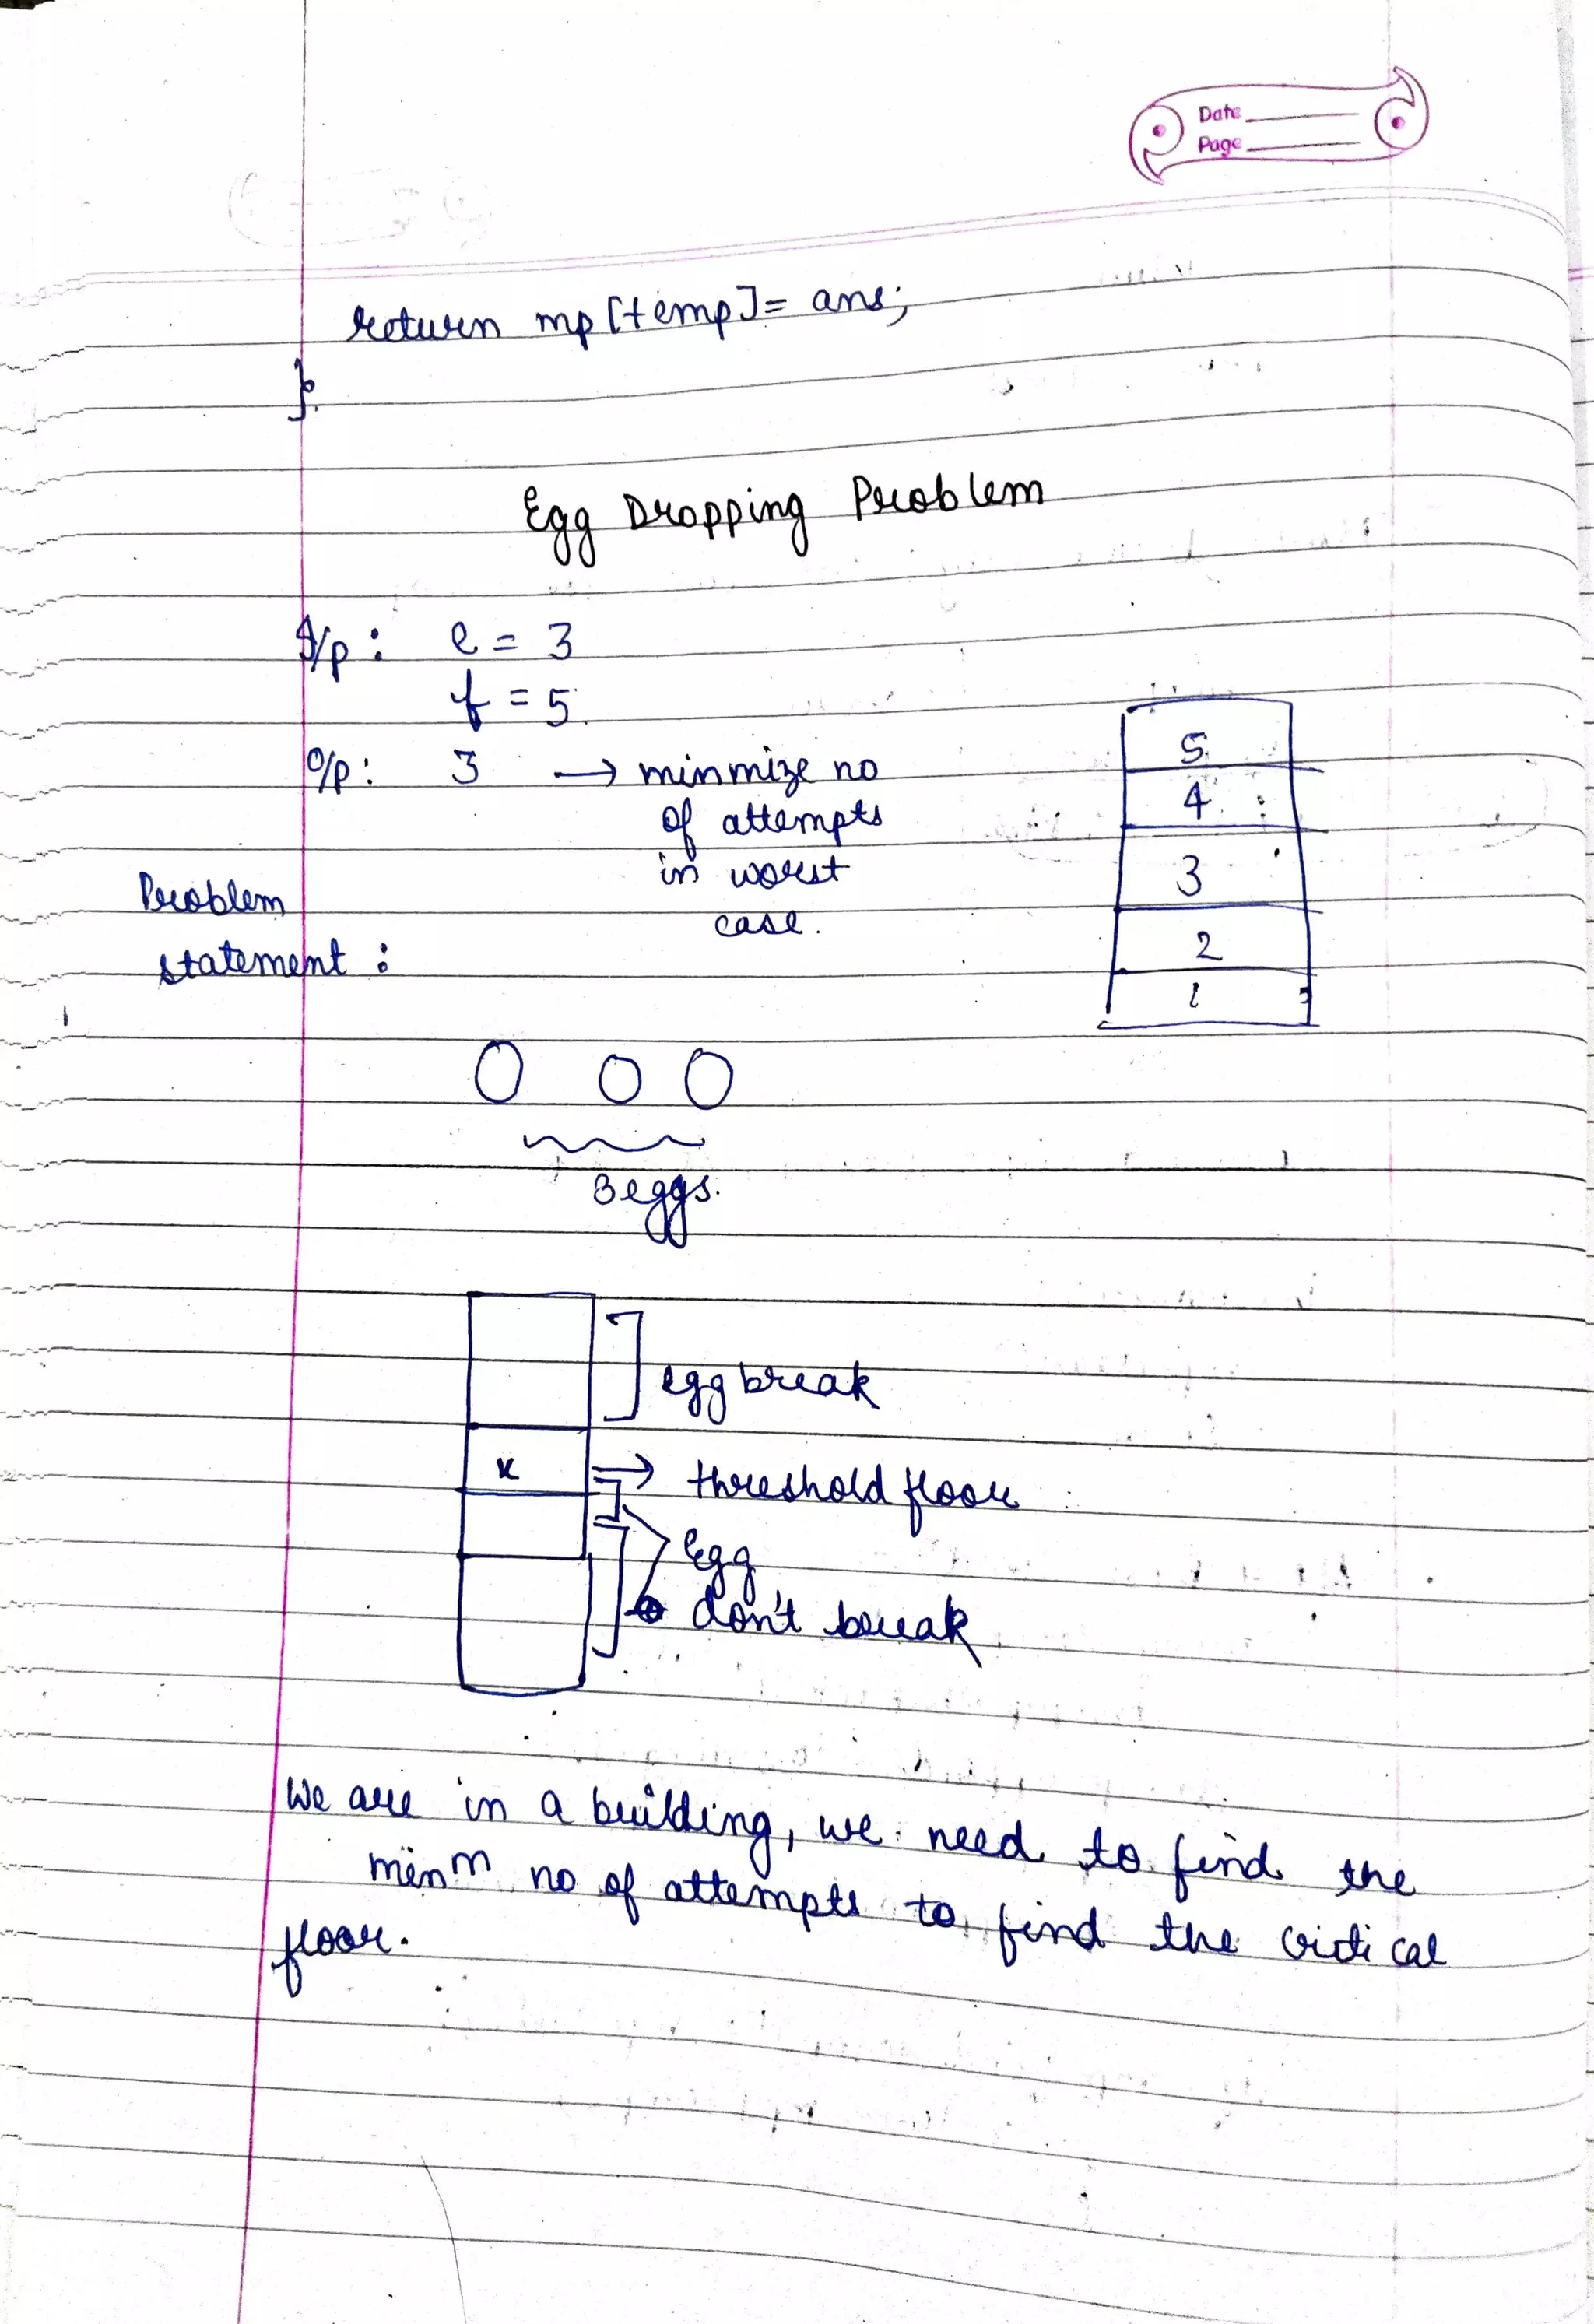 Date
Page
return mp[temp]= ans;
}
Egg Dropping Problem
I/p: e = 3
f = 5
O/p: 3 → minmize no
of attempts
in worst
case.
5
4
3
2
1
Problem
statement :
3 eggs.
egg break
k → threshold floor
Egg
don't break
We are in a building, we need to find the
minm no of attempts to find the critical
floor.